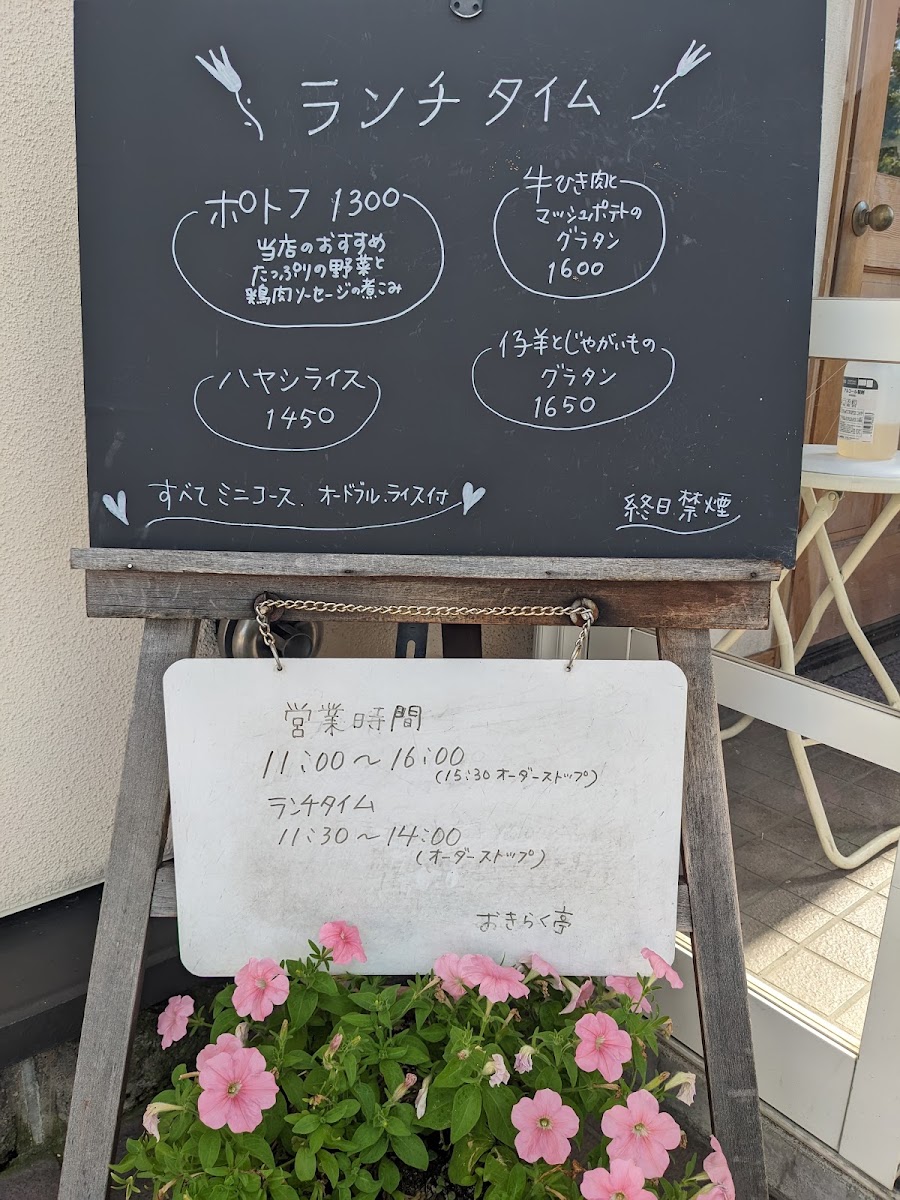 ランチタイム
ポトフ 1300
当店のおすすめ
たっぷりの野菜と
鶏肉ソーセージの煮こみ
牛ひき肉と
マッシュポテトの
グラタン
1600
ハヤシライス
1450
仔羊とじゃがいもの
グラタン
1650
すべてミニコース、オードブル、ライス付
終日禁煙
営業時間
11:00〜16:00
(15:30オーダーストップ)
ランチタイム
11:30〜14:00
(オーダーストップ)
おきらく亭